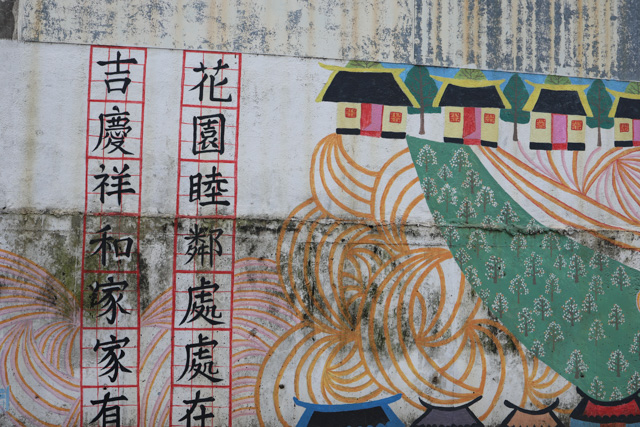 花園睦鄰處處在
吉慶祥和家家有